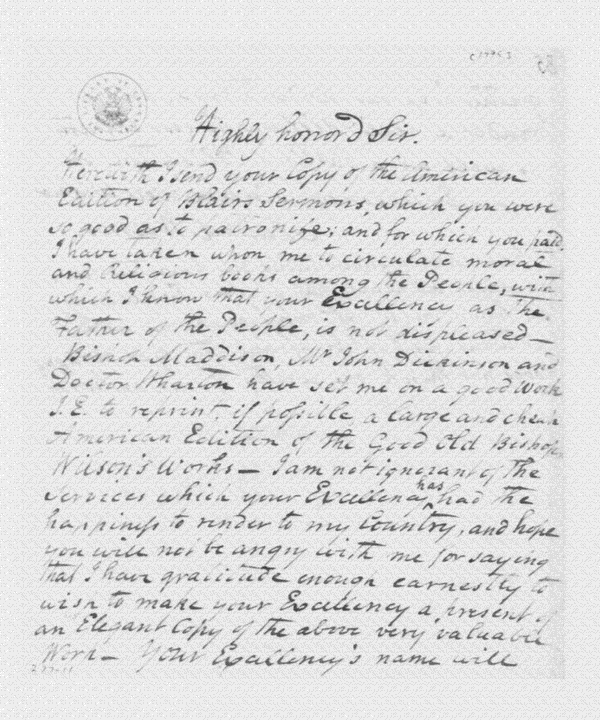 Highly honor'd Sir.
Herewith I send your Copy of the American
Edition of Blairs Sermons, which you were
so good as to patronife; and for which you paid.
I have taken upon me to circulate moral
and Religious books among the People, with
which I know that your Excellency as the
Father of the People, is not displeased—
Bishop Maddison, Mr John Dickinson and
Doctor Wharton have set me on a good Work
I.E. to reprint, if possible a large and cheap
American Edition of the Good Old Bishop
Wilson's Works— I am not ignorant of the
services which your Excellency has had the
happiness to render to my Country, and hope
you will not be angry with me for saying
that I have gratitude enough earnestly to
wish to make your Excellency a present of
an Elegant Copy of the above very valuable
Work— Your Excellency's name will